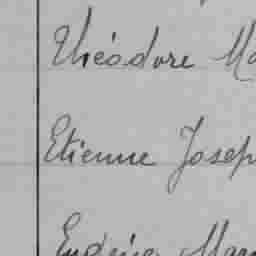 Théodore Ma
Etienne Josep
Eugène Mar